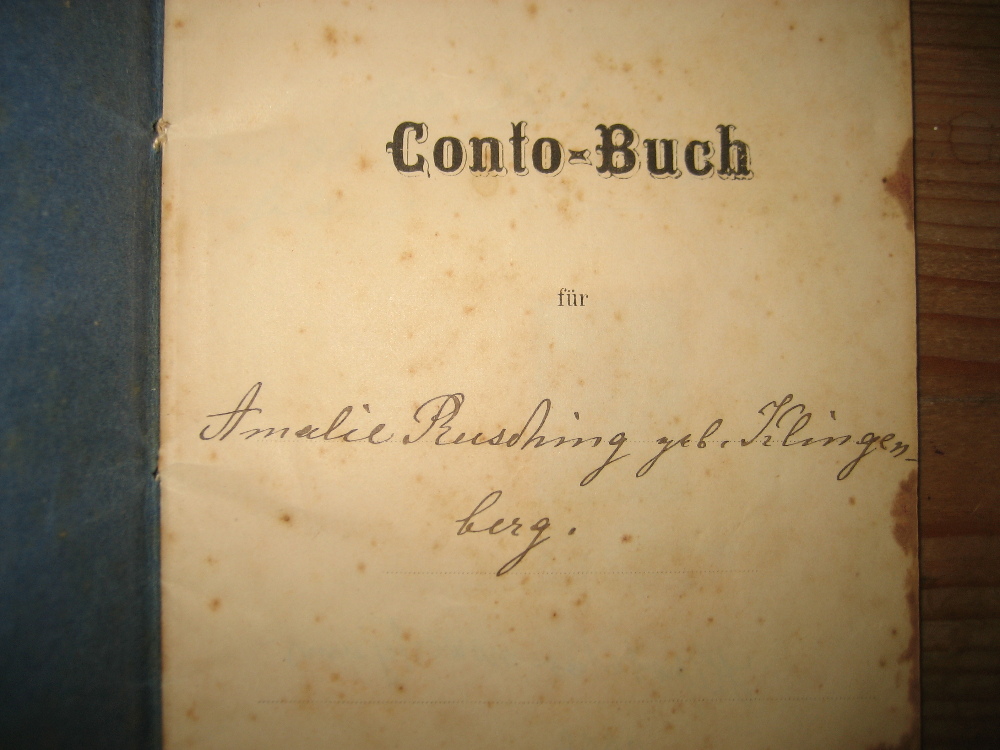 Conto-Buch
für
Amalie Rusching geb. Klingen-
berg.